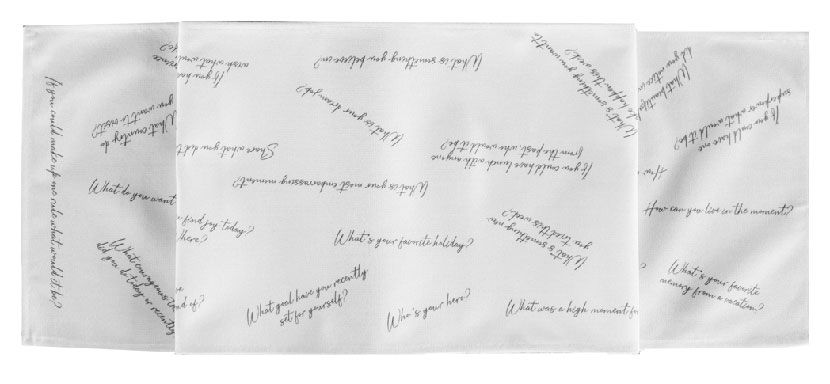 If you could make up one rule what would it be?
What country do
you want to visit?
What do you want
What courageous
did you do today or recently
If you had
a wish what would
What is something you believe in?
What is your dream job?
Share what you did
What is your most embarrassing moment?
of joy today?
here?
What's your favorite holiday?
What goal have you recently
set for yourself?
Who's your hero?
What was a high moment
If you could have lunch with anyone
from the past, who would it be?
What's something new
you tried this week?
What's something you want to
happen this week?
What beautiful
If you could have one
superpower what would it be?
How
How can you live in the moment?
What's your favorite
memory from a vacation?